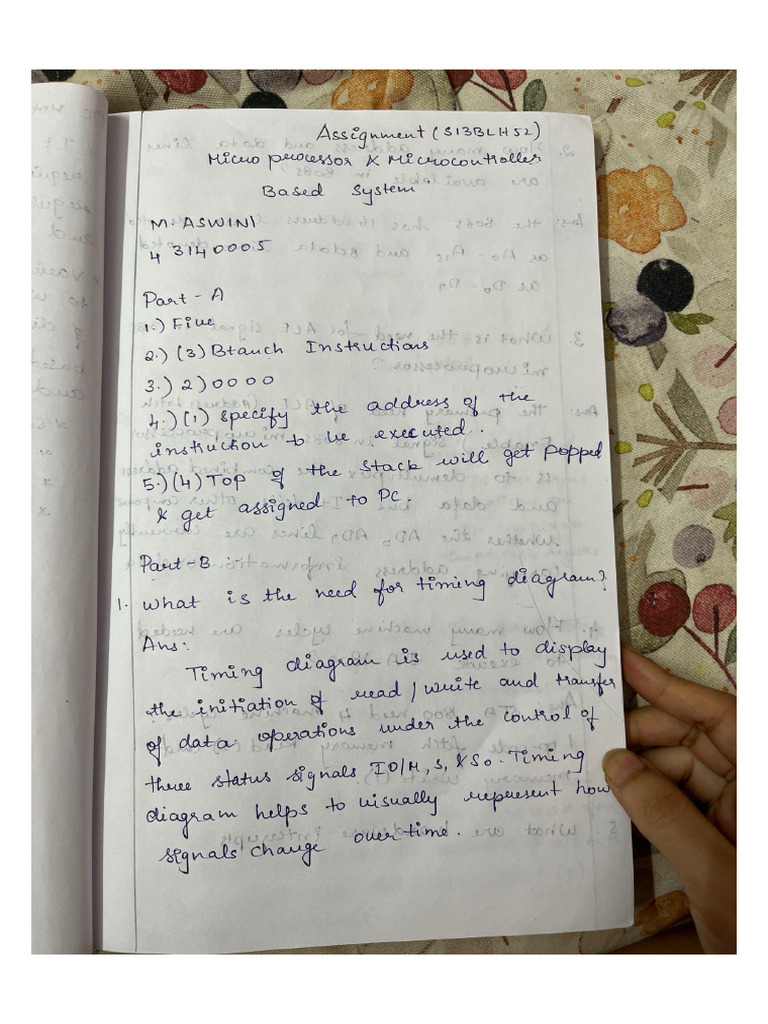 Assignment (S13BLH52)
Micro processor & Microcontroller
Based System.
M. ASWINI
43140005
Part - A
1.) Five
2.) (3) Branch Instructions
3.) 2) 0000
4.) (1) specify the address of the
instruction to be executed.
5.) (4) Top of the stack will get popped
& get assigned to PC.
Part-B :
1. What is the need for timing diagram?
Ans:
Timing diagram is used to display
the initiation of read/write and transfer
of data operations under the control of
three status signals IO/M, S, & S0. Timing
diagram helps to visually represent how
signals change over time.